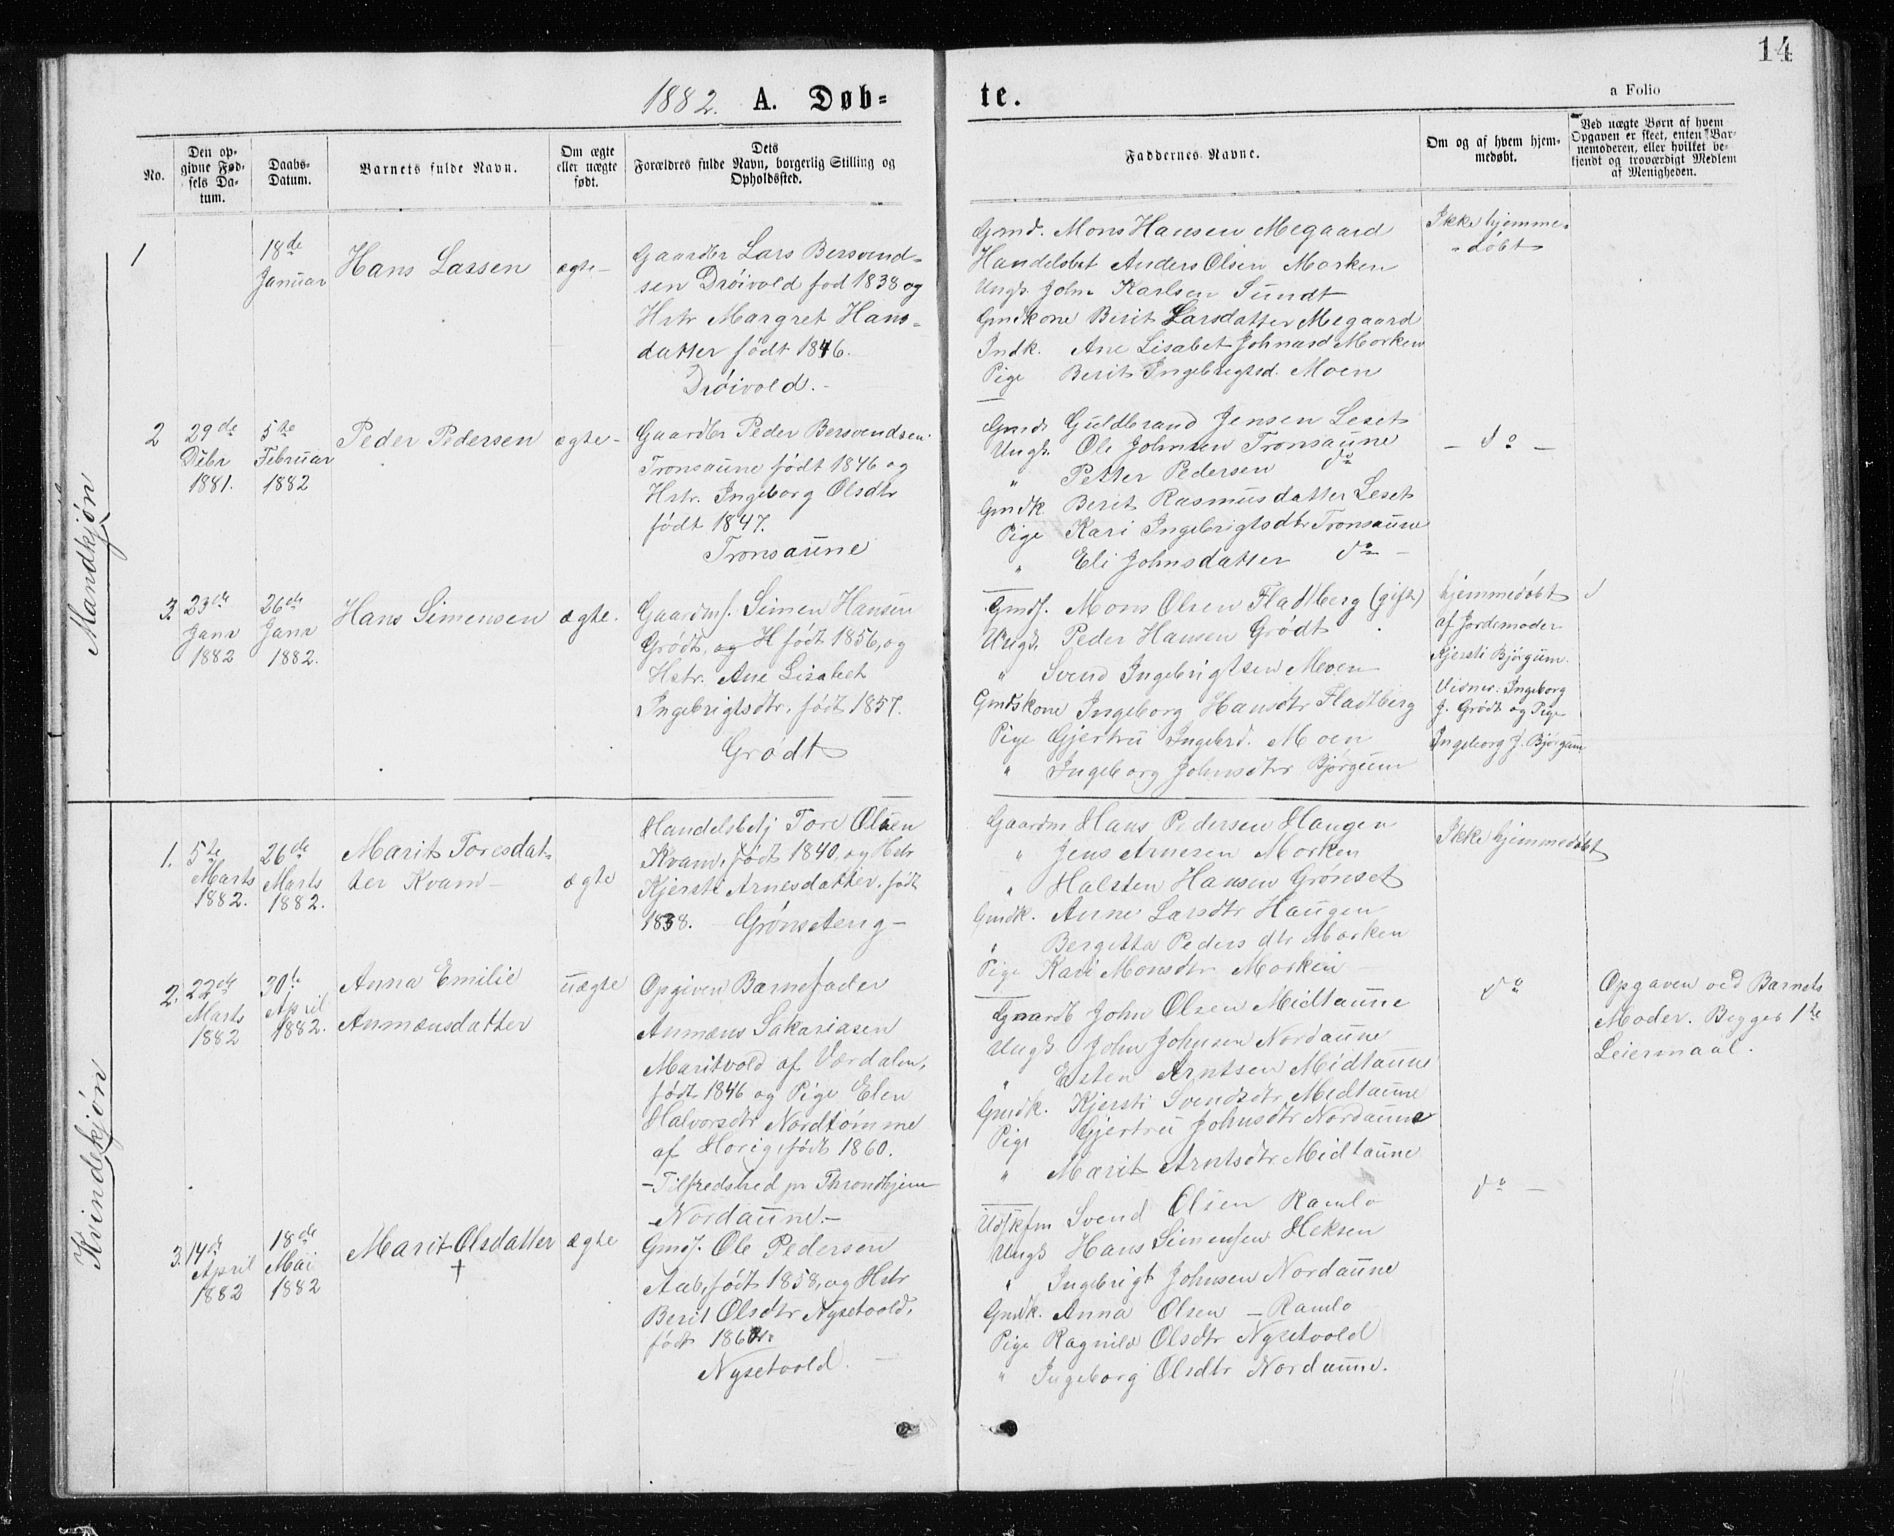 14
1882. A. Døb-
te.
a Folio
No.
Den op-
givne Fød-
sels Da-
tum.
Daabs-
Datum.
Barnets fulde Navn.
Om ægte
eller uægte
født.
Dets
Forældres fulde Navn, borgerlig Stilling og
Opholdssted.
Faddernes Navne.
Om og af hvem hjem-
medøbt.
Ved uægte Børn af hvem
Opgaven er skeet, enten Bar-
nemoderen, eller hvilket be-
kjendt og troværdigt Medlem
af Menigheden.
Mandkjøn
1
18de
Januar
Hans Lassen
ægte-
Gaardbr Lars Bersvend-
sen Drøivold fød 1838 og
Hstr Margret Hans-
datter født 1846.
Drøivold.-
Gmd. Mons Hansen Megaard
Handelsbet Anders Olsen Morken
Ungk. John Karlsen Sundt
Gmdkone Berit Larsdatter Megaard
Indk. Ane Lisabet Johnasd Morken
Pige Berit Ingebrigtsd. Moen
Ikke hjemme-
-døbt
2
29de
Debr
1881.
5te
Februar
1882
Peder Pedersen
ægte-
Gaardbr Peder Bersvendsen
Tronsaune født 1846 og
Hstr. Ingeborg Olsdtr
født 1847.
Tronsaune
Gmds Guldbrand Jensen Leset
Ungk. Ole Johnsen Tronsaune
" Petter Pedersen do
Gmdk. Berit Rasmusdatter Leset
Pige Kari Ingebrigtsdtr Tronsaune
" Eli Johnsdatter do -
- do -
3.
23de
Janr
1882
26de
Janr
1882.
Hans Simensen
ægte.
Gaardmf. Simen Hansen
Grødt, og H født 1856, og
Hstr. Ane Lisabet
Ingebrigtsdtr. født 1857.
Grødt
Gmdf. Mons Olsen Fladtberg (gift)
Ungk. Peder Hansen Grødt
" Svend Ingebrigtsen Moen
Gmdskone Ingeborg Hansdtr Fladtberg
Pige Gjertru Ingebrd. Moen
" Ingeborg Johnsdtr Bjørgum
hjemmedøbt
af Jordemoder
Kjersti Bjørgum.
Vidner: Ingeborg
J. Grødt og Pige
Ingeborg J. Bjørgum
Kvindekjøn
1.
5te
Marts
1882.
26de
Marts
1882.
Marit Toresdat-
ter Kvam-
ægte
Handelsbetj Tore Olsen
Kvam, født 1840, og Hstr
Kjersti Arnesdatter, født
1838. - Grønseteng -
Gaardm Hans Pedersen Haugen
" Jens Arnesen Morken
" Halsten Hansen Grønset
Gmdk. Anne Larsdtr Haugen
" Bergitta Pedersdtr Morken
Pige Kari Monsdtr Morken -
Ikke hjemmedøbt
2.
22de
Marts
1882
30te
April
1882.
Anna Emilie
Anmænsdatter
uægte
Opgiven Barnefader
Anmæns Sakariasen
Maritvold af Værdalen,
født 1846 og Pige Elen
Halvorsdtr Nordtømme
af Horig født 1860.
- Tilfredshed pr Throndhjem
- Nordaune.-
Gaardb John Olsen Midtaune
Ungk John Johnsen Nordaune
" Esten Arntsen Midtaune
Gmdk. Kjersti Svendsdtr Midtaune
Pige Gjertru Johnsdtr Nordaune
" Marit Arntsdtr Midtaune
do
Opgaven ved Barnets
Moder. Begges 1te
Leiermaal.
3.
14de
April
1882
18de
Mai
1882
Marit Olsdatter
†
ægte
Gmdf. Ole Pedersen
Aab, født 1858, og Hstr
Berit Olsdtr Nysetvold,
Nysetvold. -
Udskfm Svend Olsen Ramlo
Ungk Hans Simensen Heksen
" Ingebrigt Johnsen Nordaune
Gmdk. Anna Olsen - Ramlo
Pige Ragnild Olsdtr Nysetvold
" Ingeborg Olsdtr Nordaune.
do -